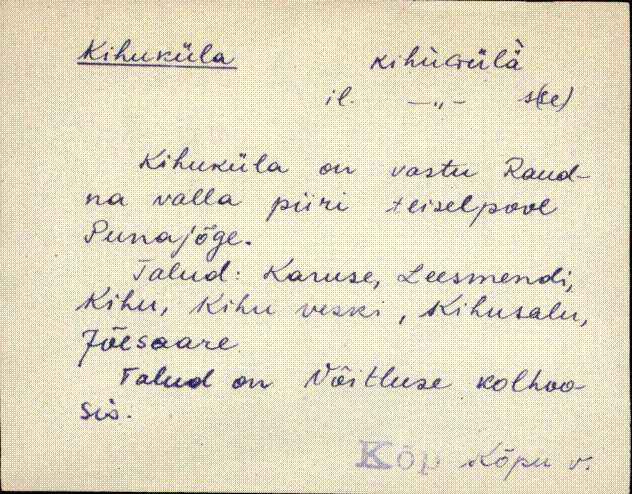 Kihuküla kihùGülä̀
il. —„— s(se)
Kihuküla on vastu Raud-
na valla piiri teiselpool
Punajõge.
Talud: Karuse, Leesmendi,
Kihu, Kihu veski, Kihusalu,
Jõesaare
Talud on Võitluse kolhoo-
sis.
Kõp Kõpu v.